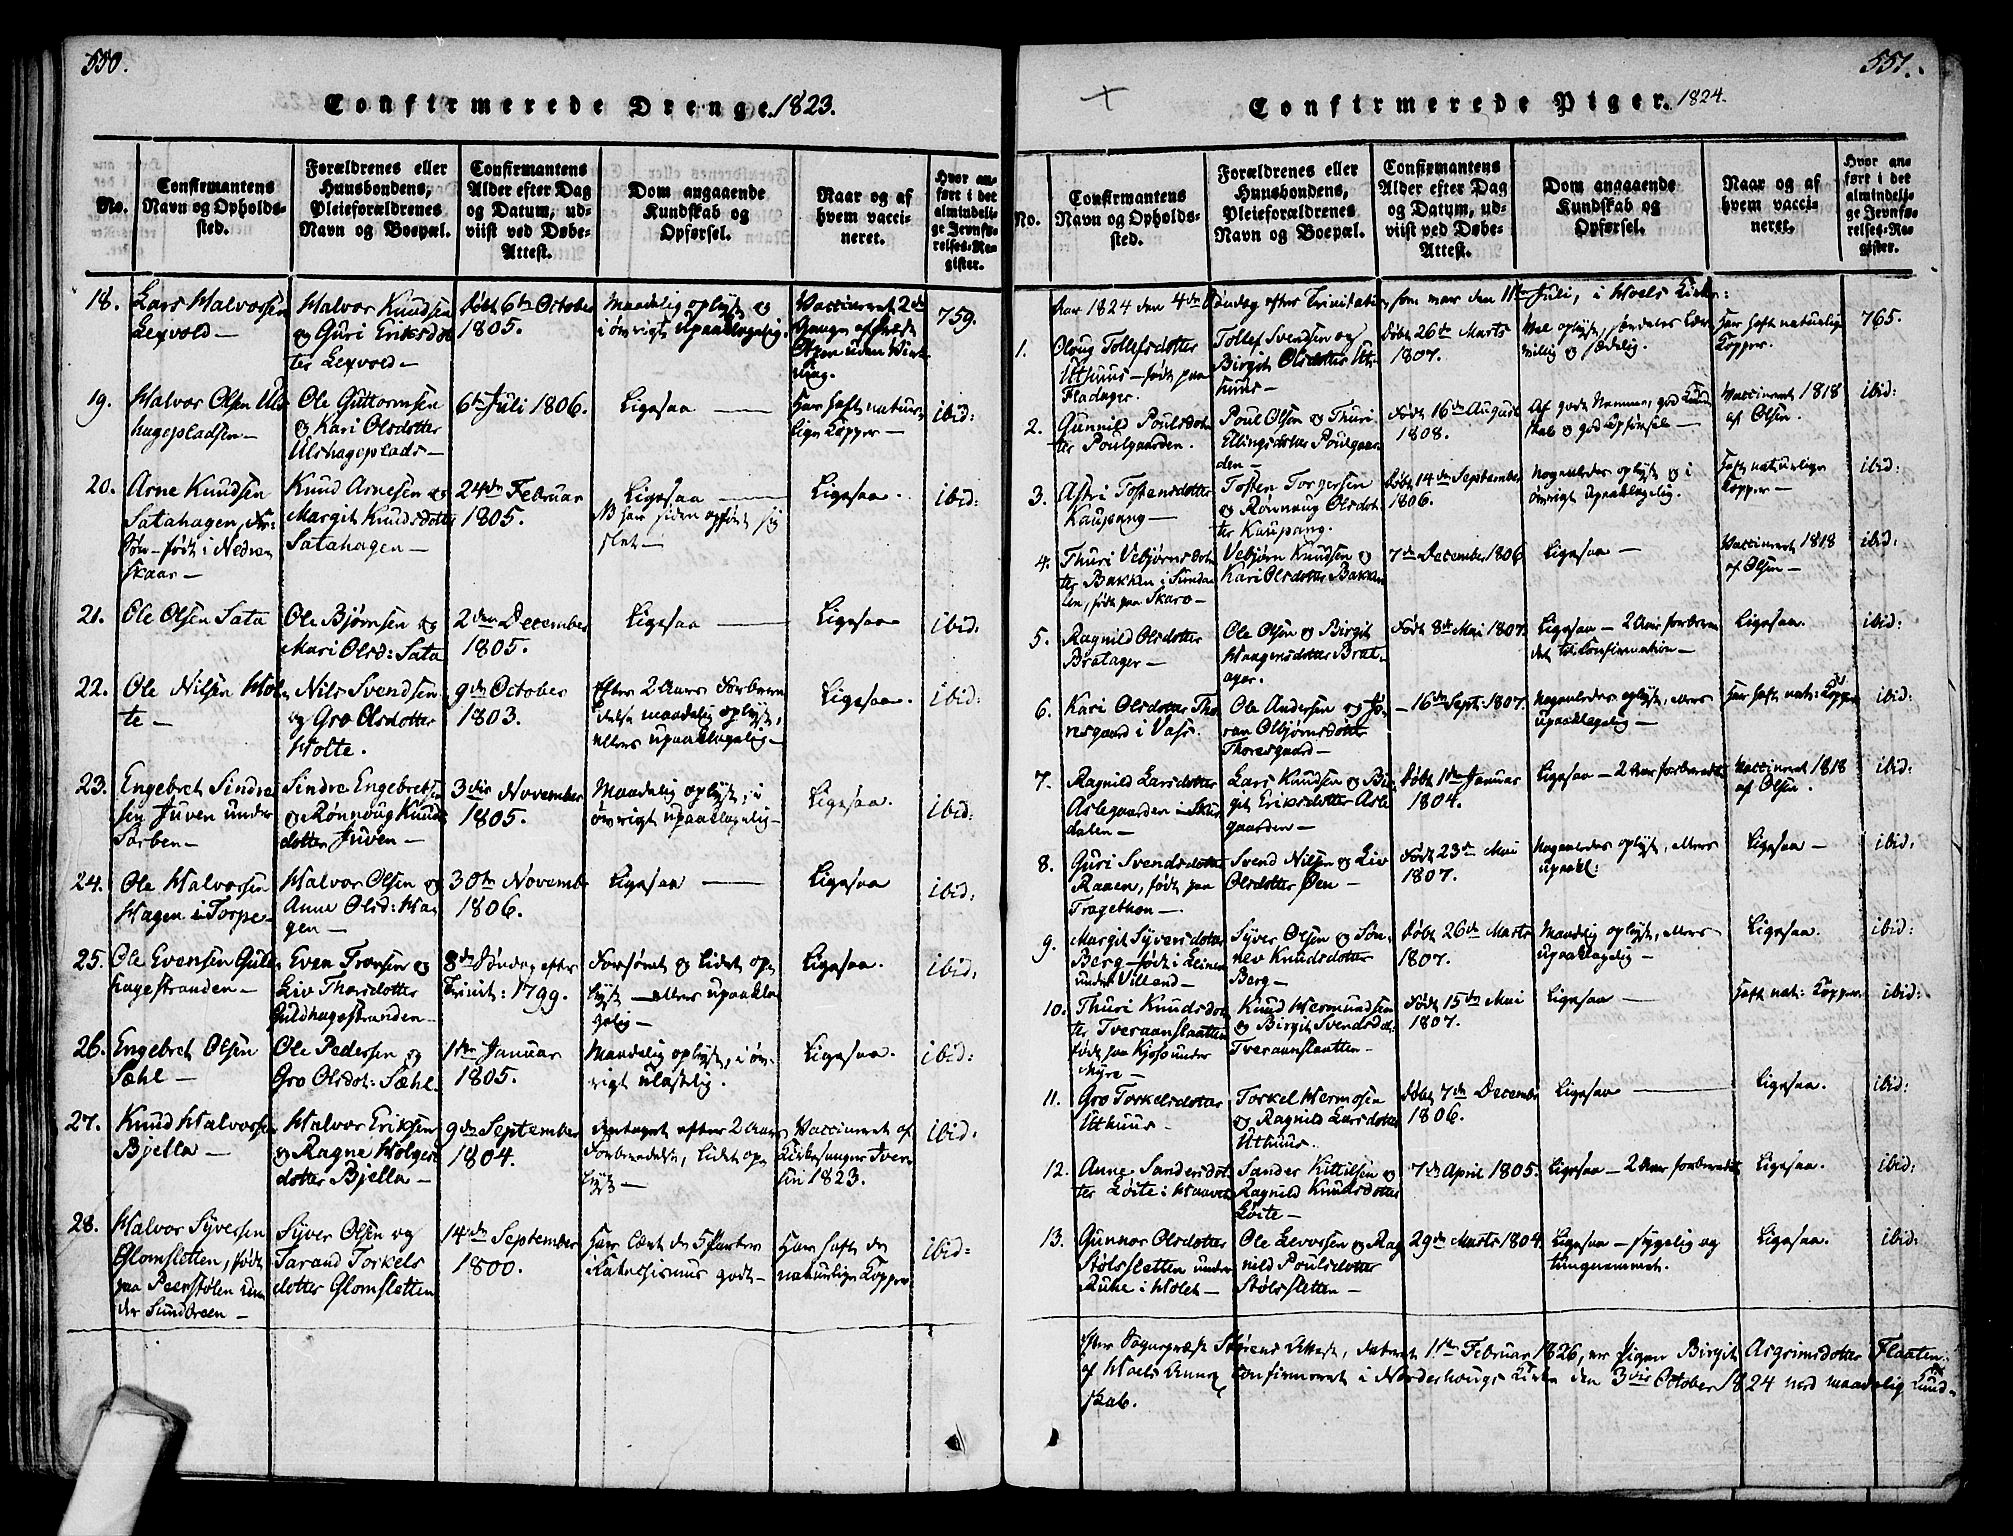 550.
Confirmerede Drenge. 1823.
No.
Confirmantens
Navn og Opholds-
sted.
Forældrenes eller
Huusbondens,
Pleieforældrenes
Navn og Boepæl.
Confirmantens
Alder efter Dag
og Datum, ud-
viist ved Døbe-
Attest.
Dom angaaende
Kundskab og
Opførsel.
Naar og af
hvem vacci-
neret.
Hvor an-
ført i det
almindeli-
ge Jevnfø-
relses-Re-
gister.
18.
Lars Halvorsen
Lexvold —
Halvor Knudsen
og Guri Eriksdot
ter Lexvold —
Døbt 6te October
1805.
Maadelig oplyst og
i øvrigt upaaklagelig.
Vaccineret 2de
Gange af
Olsen uden Virk
ning.
759.
19.
Halvor Olsen Uls
hagepladsen —
Ole Guttormsen
og Kari Olsdotter
Ulshageplads —
6te Juli 1806.
Ligesaa —
Har haft natur-
lige Kopper —
ibid:
20.
Arne Knudsen
Satahagen,
født i Nedre
skaar —
Knud Arnesen og
Margit Knudsdotter
Satahagen —
24de Februar
1805.
Ligesaa —
NB har siden opført sig
slet —
Ligesaa.
ibid:
21.
Ole Olsen Sata
Ole Bjørnsen og
Mari Olsd: Sata
2den December
1805.
Ligesaa —
Ligesaa
ibid:
22.
Ole Nilsen Hol-
te —
Nils Svendsen
og Gro Olsdotter
Holte.
9de October
1803.
Efter 2 Aars Forbere
delse maadelig oplyst,
ellers upaaklagelig —
Ligesaa.
ibid:
23.
Engebret Sindre
sen Juven under
Sorben —
Sindre Engebrets:
og Rønnoug Knuds
dotter Juven —
3die November
1805.
Maadelig oplyst, i
øvrigt upaaklagelig —
Ligesaa.
ibid:
24.
Ole Halvorsen
Hagen i Torpe —
Halvor Olsen og
Anne Olsd: Ha
gen —
30te Novemb
1806.
Ligesaa —
Ligesaa
ibid:
25.
Ole Evensen Guld
hagestranden —
Even Trovsen og
Liv Thorsdotter
Guldhagestranden —
8de Søndag efter
Trinit: 1799.
Forsømt og lidet op
lyst — ellers upaakla
gelig —
Ligesaa.
ibid:
26.
Engebret Olsen
Sæhl —
Ole Pedersen og
Gro Olsdot: Sæhl.
1te Januar
1805.
Maadelig oplyst, i øv-
rigt ulastelig.
Ligesaa.
ibid:
27.
Knud Halvorsen
Bjella —
Halvor Eriksen
og Ragne Holger
dotter Bjella —
9de September
1804.
Antaget efter 2 Aars
Forberedelse, lidet op
lyst —
Vaccineret af
Kirkesanger Iver
sen 1823.
ibid:
28.
Halvor Syversen
Glomsletten, født
paa Peerstølen un
der Sundreen —
Syver Olsen og
Tarand Torkels
dotter Glomsletten
14de September
1800.
Har lært de 5 Parter
i Katechismus godt —
Har haft de
naturlige Kopper
ibid:
551.
Confirmerede Piger. 1824.
No.
Confirmantens
Navn og Opholds-
sted.
Forældrenes eller
Huusbondens,
Pleieforældrenes
Navn og Boepæl.
Confirmantens
Alder efter Dag
og Datum, ud-
viist ved Døbe-
Attest.
Dom angaaende
Kundskab og
Opførsel.
Naar og af
hvem vacci-
neret.
Hvor an-
ført i det
almindeli-
ge Jevnfø-
relses-Re-
gister.
Aar 1824 den 4de Søndag efter Trinitatis, som var den 11te Juli, i Hoels Kirke:
1.
Oloug Tollefsdotter
Uthuus — født paa
Fladager.
Tollef Svendsen og
Birgit Olsdotter Ut-
huus —
Døbt 26de Marts
1807.
Vel oplyst, særdeles lær
villig og sædelig.
Har haft naturlige
Kopper.
765.
2.
Gunnild Poulsdot
ter Poulgaarden.
Poul Olsen og Thuri
Ellingsdotter Poulgaar
den —
Født 16de August
1808.
Af gode Nemme, god Kund
skab og god Opførsel —
Vaccineret 1818
af Olsen.
ibid:
3.
Astri Tostensdotter
Kaupang —
Tosten Torgersen
og Rønnoug Olsdot
ter Kaupang.
Døbt 14de September
1806.
Nogenledes oplyst og i
øvrigt upaaklagelig.
Haft naturlige
Kopper —
ibid:
4.
Thuri Vebjørnsdot
ter Bakken i Sunda
len, født paa Skaro —
Vebjørn Knudsen og
Kari Olsdotter Bakken
7de December 1806
Ligesaa —
Vaccineret 1818
af Olsen —
ibid:
5.
Ragnild Olsdotter
Bratager —
Ole Olsen og Birgit
Haagensdotter Brat-
ager.
Født 8de Mai 1807.
Ligesaa — 2 Aar forbere
det til Confirmation —
Ligesaa.
ibid:
6.
Kari Olsdotter Tho
resgaard i Vass.
Ole Andersen og Jø-
ran Olbjørnsdotter
Thoresgaard —
— 16de Sept: 1807.
Nogenledes oplyst, ellers
upaaklagelig —
Har haft nat: Kopper
ibid:
7.
Ragnild Larsdotter
Aslegaarden i Skur
dalen —
Lars Knudsen og Bir
git Eriksdotter Asle
gaarden —
Døbt 1te Januar
1804.
Ligesaa — 2 Aar forberedt
Vaccineret 1818
af Olsen.
ibid:
8.
Guri Svendsdotter
Raaen, født paa
Tragethon —
Svend Nilsen og Liv
Olsdotter Øen —
Født 23de Mai
1807.
Nogenledes oplyst, ellers
upaakl:
Ligesaa —
ibid:
9.
Margit Syversdotter
Berg — født i Leinen
under Villand —
Syver Olsen og Søn-
nev Knudsdotter
Berg —
Døbt 26de Marts
1807.
Maadelig oplyst, ellers
upaaklagelig —
Ligesaa.
ibid:
10.
Thuri Knudsdot
ter Tveraanslaatten
født paa Kjøss under
Myre —
Knud Hermundsen
og Birgit Svendsdot:
Tveraanslaatten —
Født 15de Mai
1807.
Ligesaa —
Haft nat: Kopper.
ibid:
11.
Gro Torkelsdotter
Uthuus —
Torkel Hermosen
og Ragnild Larsdotter
Uthuus.
Døbt 7de Decembr
1806.
Ligesaa —
Ligesaa.
ibid:
12.
Anne Sandersdot
ter Løite i Haavet
Sander Kittilsen og
Ragnild Knudsdotter
Løite —
7de April 1805.
Ligesaa — 2 Aar forberedt
Ligesaa.
ibid:
13.
Gunnor Olsdotter
Stølsletten under
Ruue i Holet —
Ole Levorsen og Rag
nild Poulsdotter
Stølsletten —
29de Marts 1804.
Ligesaa — sygelig og
tungnemmet.
Ligesaa.
ibid:
Efter Sognepræst Størens Attest, dateret 1te Februar 1826, er Pigen Birgit Asgrimsdotter Flaaten
af Hoels Annex confirmeret i Norderhougs Kirke den 3die October 1824 med maadelig Kund-
skab.